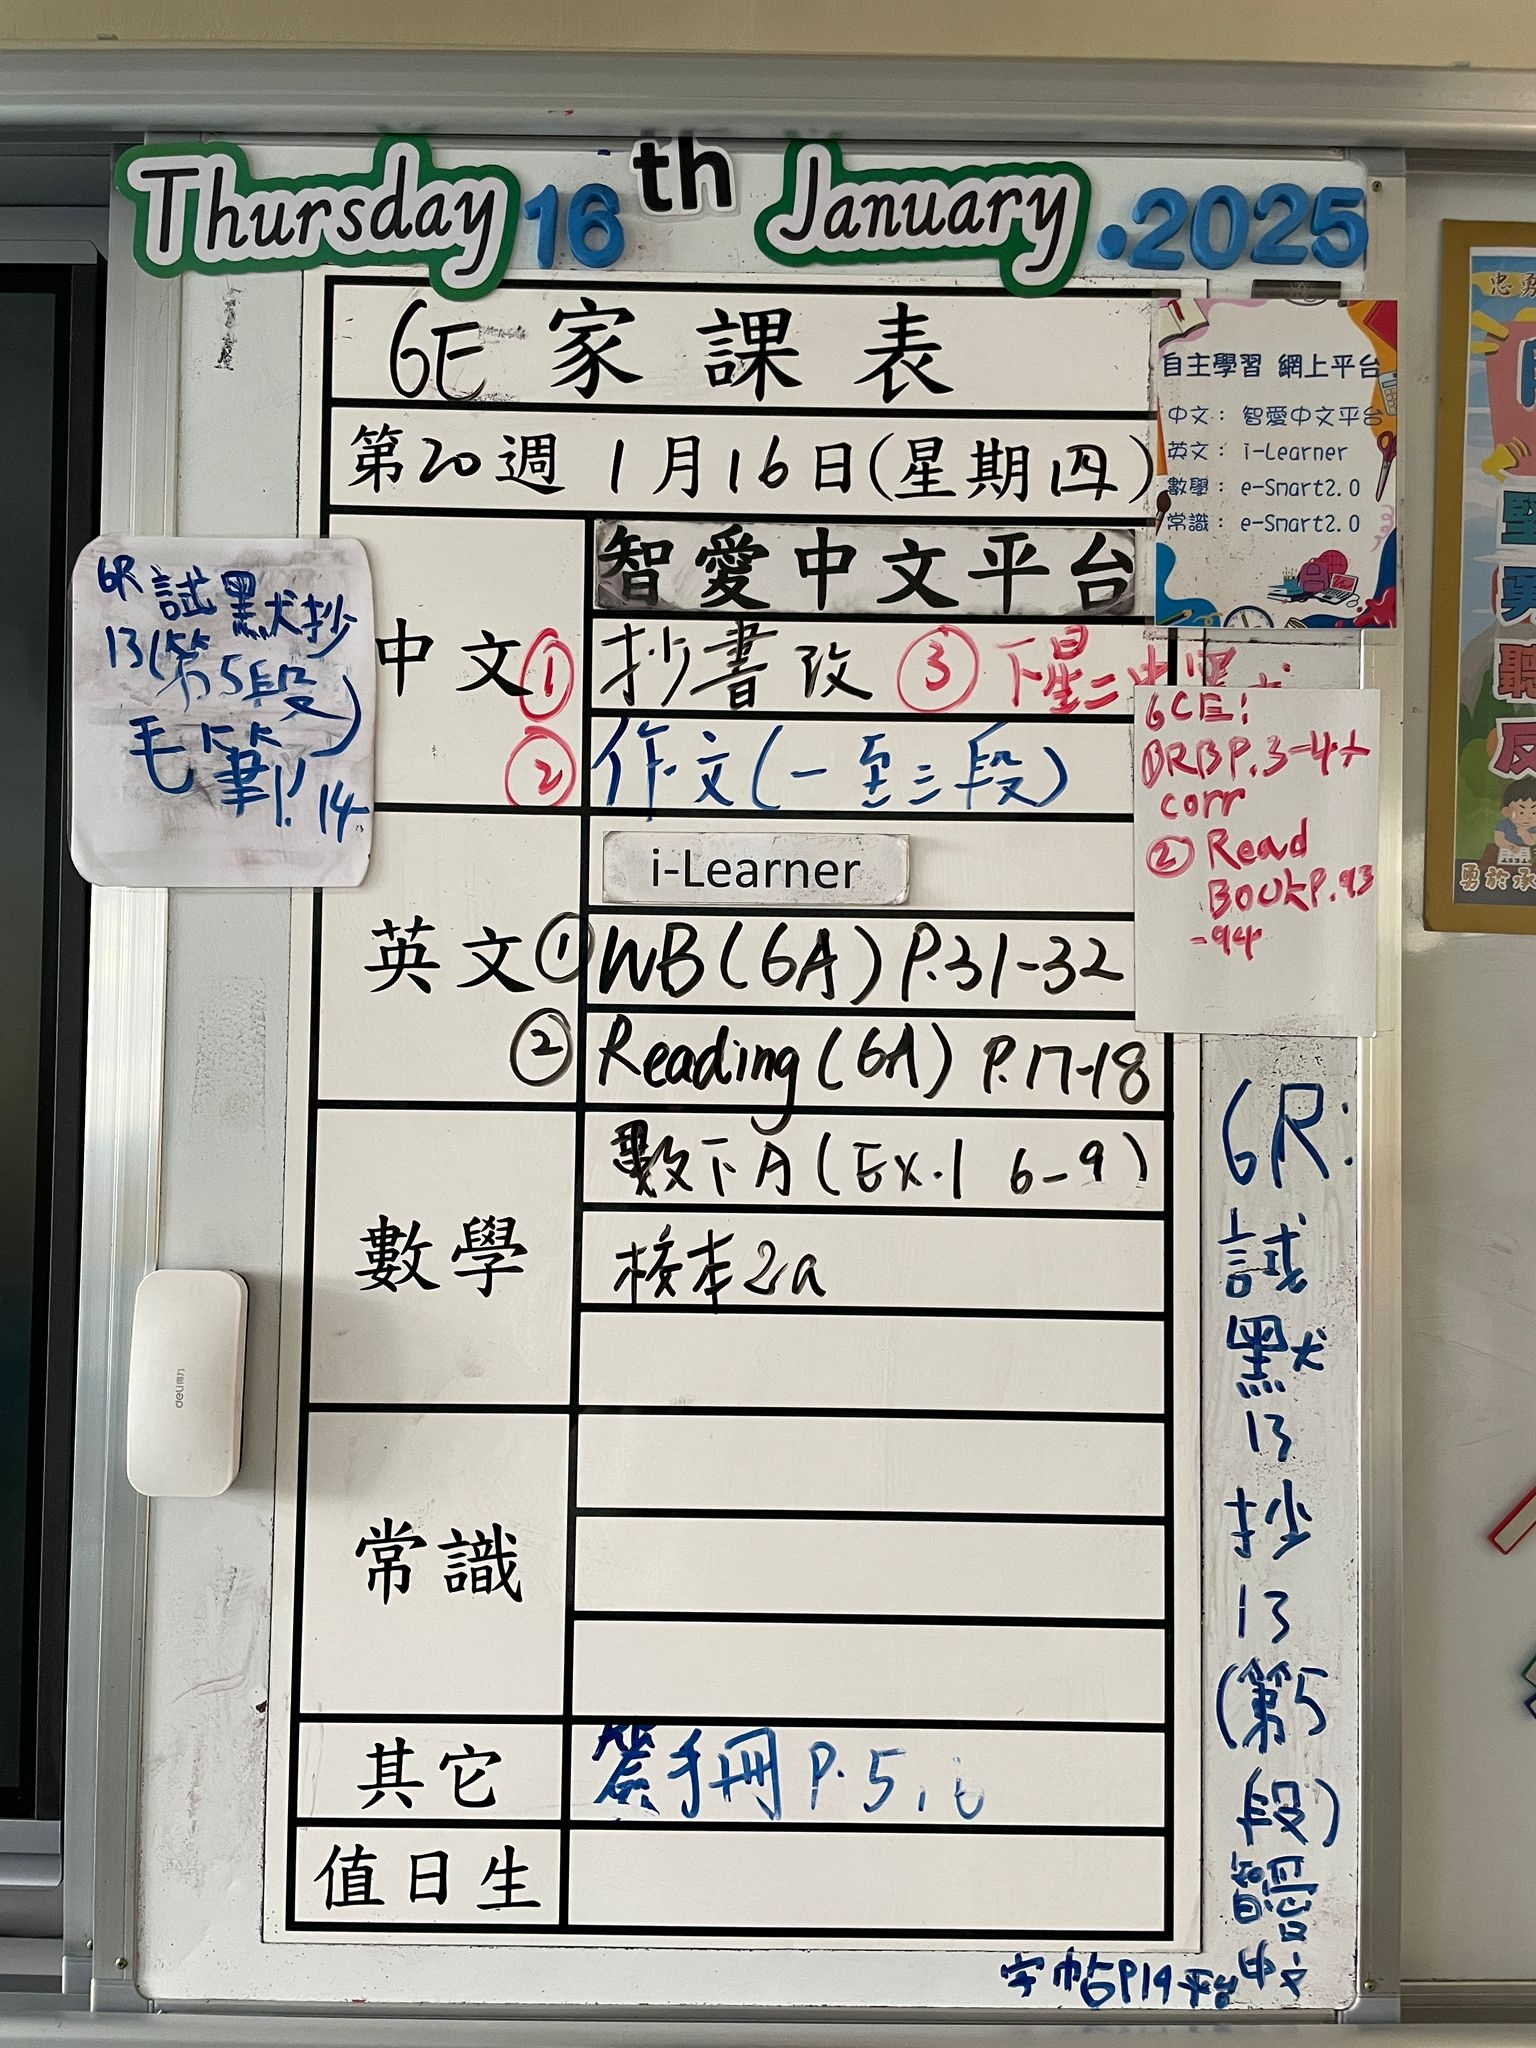 Thursday 16th January.2025
6E 家課表
第20週 1月16日(星期四)
自主學習 網上平台
中文： 智愛中文平台
英文： i-Learner
數學： e-Smart2.0
常識： e-Smart2.0
6R 試默抄
13(第5段)
毛筆P.14
中文
智愛中文平台
① 抄書改 ③ 下星二
② 作文(一至三段)
6CE:
①RBP.3-4+
corr
② Read
BookP.93
-94
英文
i-Learner
① WB(6A) P.31-32
② Reading(6A) P.17-18
數學
數下A(Ex.1 6-9)
校本2a
常識
其它
簽手冊 P.5,6
值日生
6R:
試
默
13
抄
13
(第5
段)
智愛
中文
平台
字帖P19
deli得力
忠勇
堅
勇
聽
反
勇於承